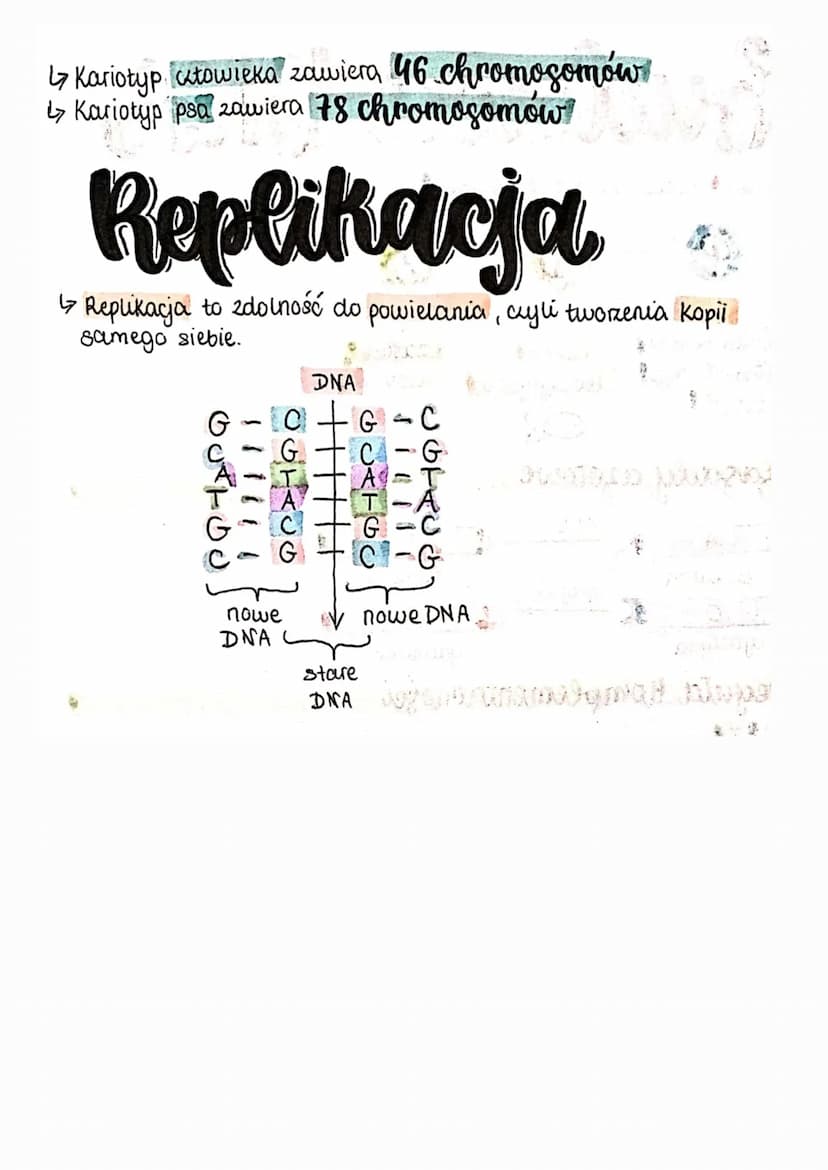 ↳ Kariotyp człowieka zawiera 46 chromosomów
↳ Kariotyp psa zawiera 78 chromosomów
Replikacja
↳ Replikacja to zdolność do powielania, czyli tworzenia kopii
samego siebie.
DNA
G - C + G - C
C - G + C - G
A - T + A - T
T - A + T - A
G - C + G - C
C - G + C - G
nowe DNA
nowe DNA
stare
DNA